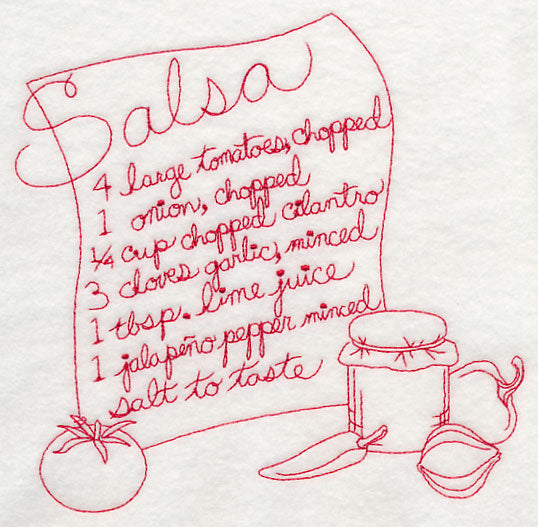 Salsa
4 large tomatoes, chopped
1 onion, chopped
1/4 cup chopped cilantro
3 cloves garlic, minced
1 tbsp. lime juice
1 jalapeño pepper minced
salt to taste